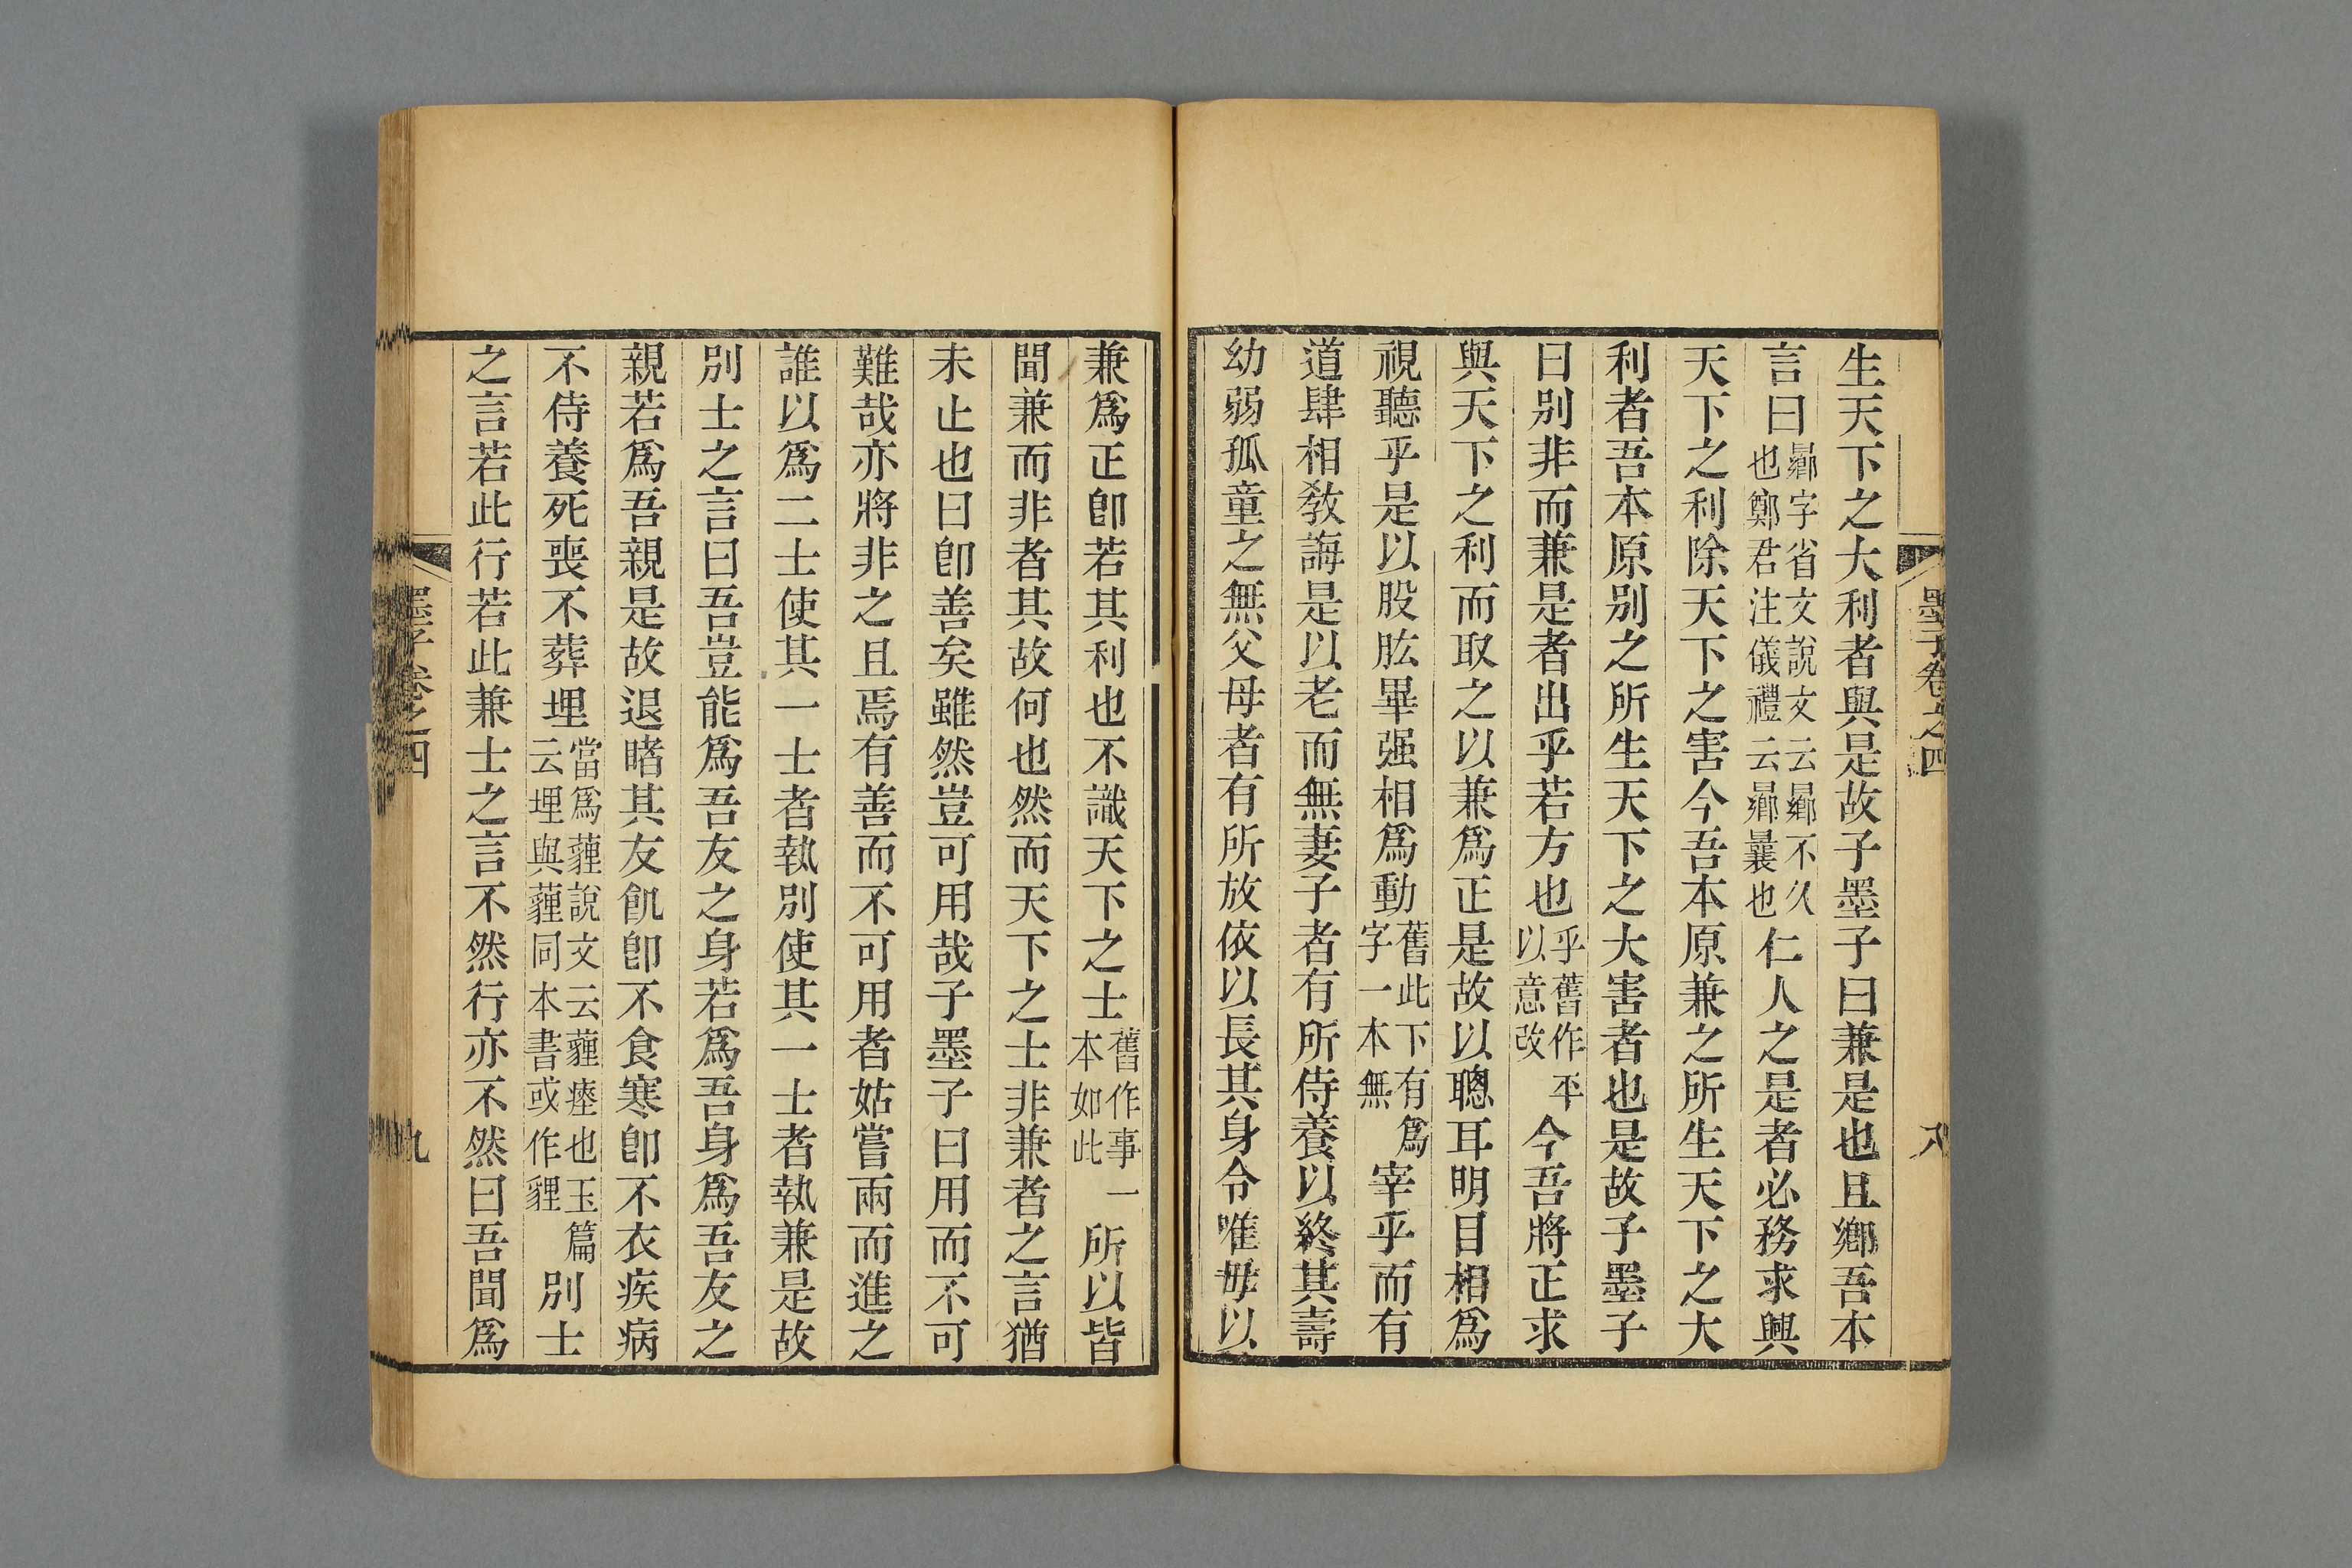 墨子卷之四
八
生天下之大利者與是故子墨子曰兼是也且鄉吾本
言曰曏字省文說文云曏不久也鄭君注儀禮云曏曩也仁人之是者必務求興
天下之利除天下之害今吾本原兼之所生天下之大
利者吾本原别之所生天下之大害者也是故子墨子
曰别非而兼是者出乎若方也乎舊作平以意改今吾將正求
與天下之利而取之以兼爲正是故以聰耳明目相爲
視聽乎是以股肱畢强相爲動舊此下有爲字一本無宰乎而有
道肆相敎誨是以老而無妻子者有所侍養以終其壽
幼弱孤童之無父母者有所放依以長其身令唯毋以
兼爲正卽若其利也不識天下之士舊作事一本如此所以皆
聞兼而非者其故何也然而天下之士非兼者之言猶
未止也曰卽善矣雖然豈可用哉子墨子曰用而不可
難哉亦將非之且焉有善而不可用者姑嘗兩而進之
誰以爲二士使其一士者執别使其一士者執兼是故
别士之言曰吾豈能爲吾友之身若爲吾身爲吾友之
親若爲吾親是故退睹其友飢卽不食寒卽不衣疾病
不侍養死喪不葬埋當爲薶說文云薶瘞也玉篇云埋與薶同本書或作貍别士
之言若此行若此兼士之言不然行亦不然曰吾聞爲
墨子卷之四
九